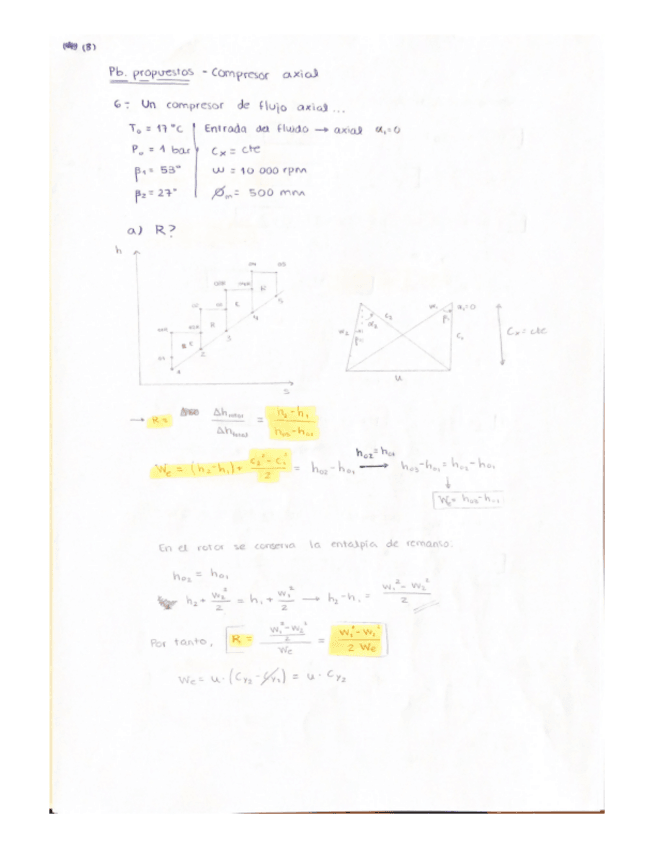 (8)
Pb. propuestos - Compresor axial
6: Un compresor de flujo axial...
T₀ = 17°C | Entrada del fluido → axial α₁=0
P₀ = 1 bar | Cx = cte
β₁ = 53° | ω = 10 000 rpm
β₂ = 27° | Øm = 500 mm
a) R?
h
R
4
3
2
1
s
α₁=0
C₁
u
Cx = cte
→ R = Δhrotor / Δhtotal = h₂-h₁ / h₀₃-h₀₁
Wc = (h₂-h₁) + C₂²-C₁² / 2 = h₀₂-h₀₁ → h₀₃-h₀₁ = h₀₂-h₀₁
h₀₂=h₀₃
Wc = h₀₃-h₀₁
En el rotor se conserva la entalpía de remanso:
h₀₂ = h₀₁
h₂ + W₂²/2 = h₁ + W₁²/2 → h₂-h₁ = W₁²-W₂² / 2
Por tanto, R = (W₁²-W₂² / 2) / Wc = W₁²-W₂² / 2 Wc
Wc = u·(Cy₂ - Cy₁) = u·Cy₂